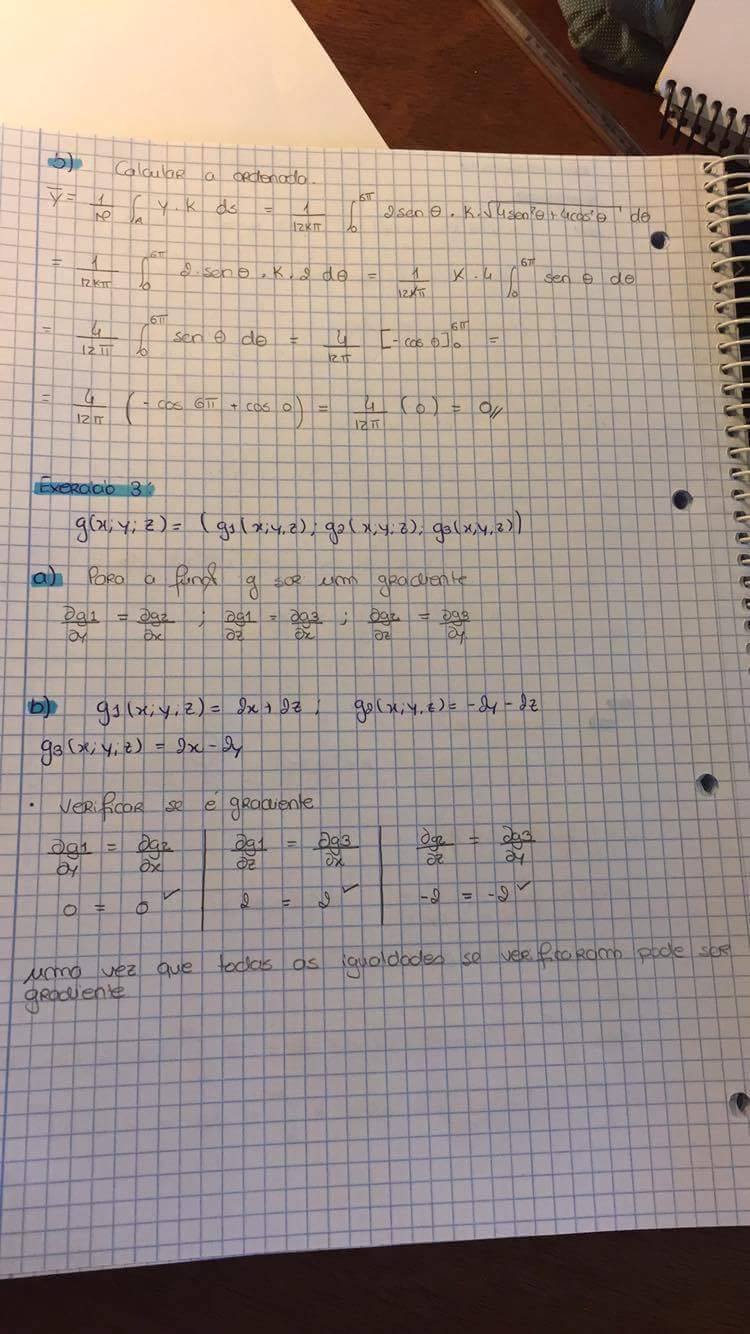 b) Calcular a ordenada.
ȳ = 1/m ∫_A y.k ds = 1/12kπ ∫_0^6π 2senθ . k. √(4sen²θ + 4cos²θ) dθ
= 1/12kπ ∫_0^6π 2.senθ.k.2 dθ = 1/12kπ k.4 ∫_0^6π sen θ dθ
= 4/12π ∫_0^6π sen θ dθ = 4/12π [-cos θ]_0^6π =
= 4/12π (-cos 6π + cos 0) = 4/12π (0) = 0//
Exercício 3:
g(x;y;z) = (g1(x;y,z); g2(x,y;z); g3(x,y,z))
a) Para a g ser um gradiente
∂g1/∂y = ∂g2/∂x ; ∂g1/∂z = ∂g3/∂x ; ∂g2/∂z = ∂g3/∂y
b) g1(x,y,z) = 2x+2z ; g2(x,y,z) = -2y-2z
g3(x,y,z) = 2x-2y
. Verificar se é gradiente
∂g1/∂y = ∂g2/∂x | ∂g1/∂z = ∂g3/∂x | ∂g2/∂z = ∂g3/∂y
0 = 0 ✓ | 2 = 2 ✓ | -2 = -2 ✓
uma vez que todas as igualdades se verificaram pode ser
gradiente